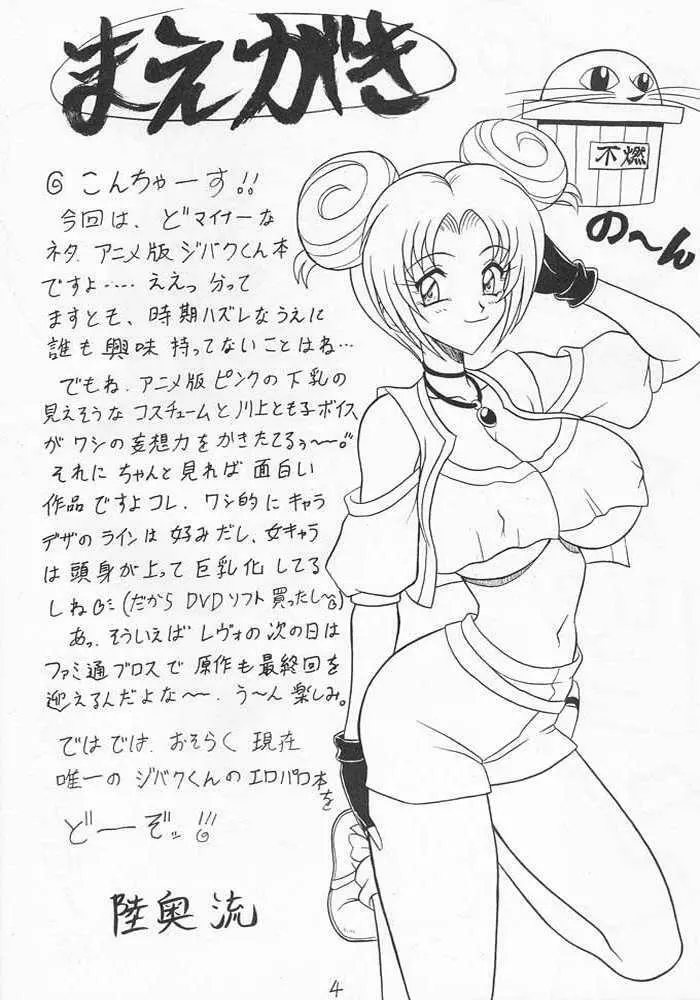 まえがき
不燃
の〜ん
◎こんちゃーす!!
今回は、どマイナーな
ネタ、アニメ版ジバクくん本
ですよ‥‥ ええっ分って
ますとも、時期ハズレなうえに
誰も興味持ってないことはね…
でもね、アニメ版ピンクの下乳の
見えそうなコスチュームと川上とも子ボイス
がワシの妄想力をかきたてるぅ〜〜。
それにちゃんと見れば面白い
作品ですよコレ、ワシ的にキャラ
デザのラインは好みだし、女キャラ
は頭身が上って巨乳化してる
しね (だからDVDソフト買ったし〜)
あっ、そういえばレヴォの次の日は
ファミ通ブロスで原作も最終回を
迎えるんだよな〜〜、う〜ん楽しみ。
ではでは、おそらく現在
唯一のジバクくんのエロパロ本を
どーぞッ!!!
陸奥流
4